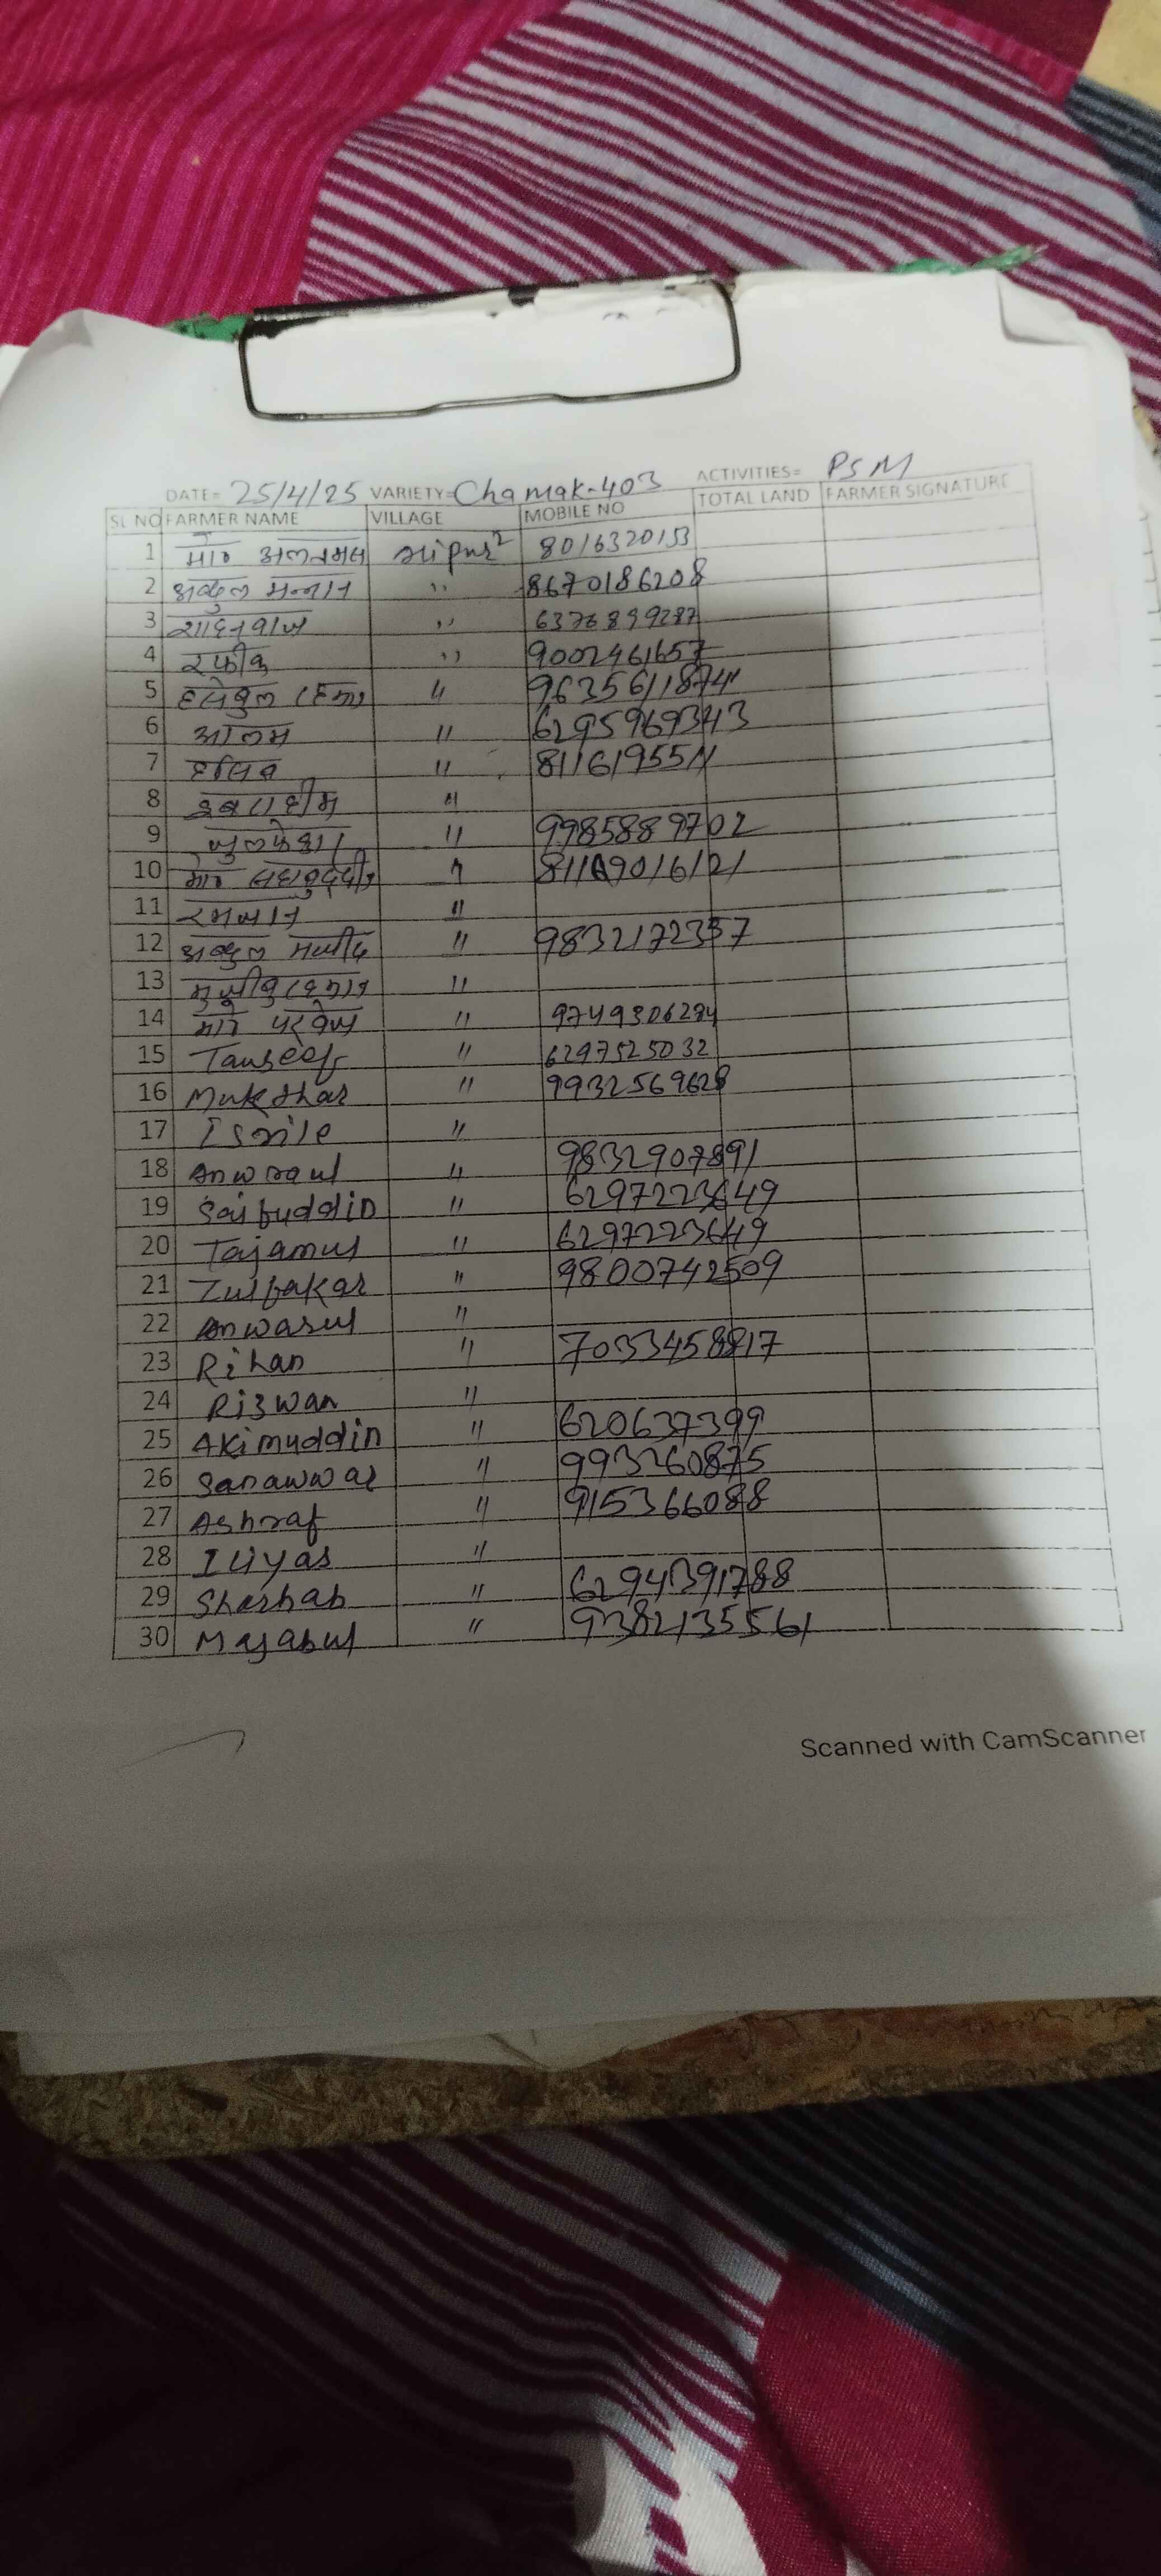 DATE= 25/4/25 VARIETY= Chamak-403 ACTIVITIES= PSM
SL NO FARMER NAME VILLAGE MOBILE NO TOTAL LAND FARMER SIGNATURE
1 8016320153
2 अब्दुल मन्नान " 8670186208
3 शाहनवाज " 6376899287
4 रफीक " 9002461657
5 " 9635611874
6 आलम " 6295969343
7 "
8 इबराहीम "
9 " 9985889702
10 मो० "
11 रमजान "
12 अब्दुल मजीद " 9832172357
13 मुजीबुर रहमान "
14 मो० परवेज " 9749306274
15 Tauseef " 6297525032
16 Mukthar " 9932569628
17 "
18 Anwraul " 9832907891
19 Saifuddin " 6297223649
20 Tajamul " 6297223649
21 Zulfakar " 9800742509
22 Anwarul "
23 Rihan " 7033458817
24 Rizwan "
25 Akimuddin " 620637399
26 Sanawwar " 993260875
27 Ashraf " 915366088
28 Iliyas "
29 " 6294391788
30 " 9382135561
Scanned with CamScanner